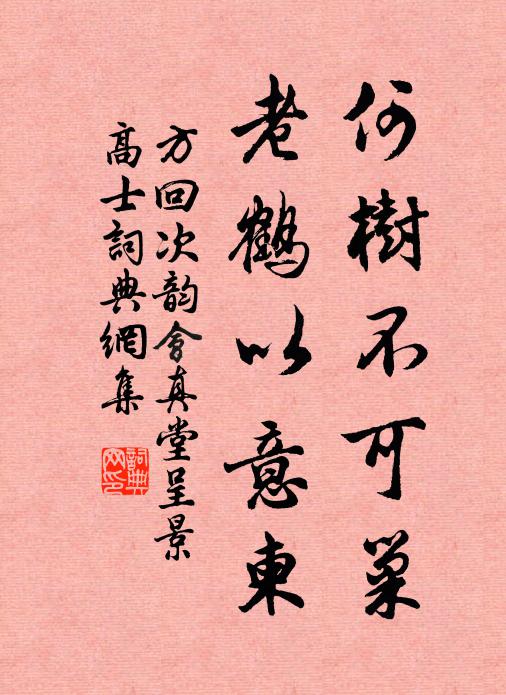 何樹不可巢
老鶴以意東
方回次韵會真堂呈景
高士詞典網集
詞典网印